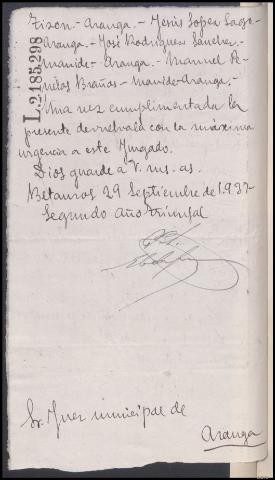 Tizon.- Aranga.- Jesús Lopez Lago.-
Aranga.- José Rodriguez Sanchez.-
Munide.- Aranga.- Manuel Pe-
Braños.- Munide-Aranga.-
Una vez cumplimentada la
presente devuelvala con la máxima
urgencia a este Juzgado.
Dios guarde a V. ms. as.
Betanzos 29 Septiembre de 1.937-
Segundo Año Triunfal
Sr. Juez municipal de
Aranga
L:2185,298